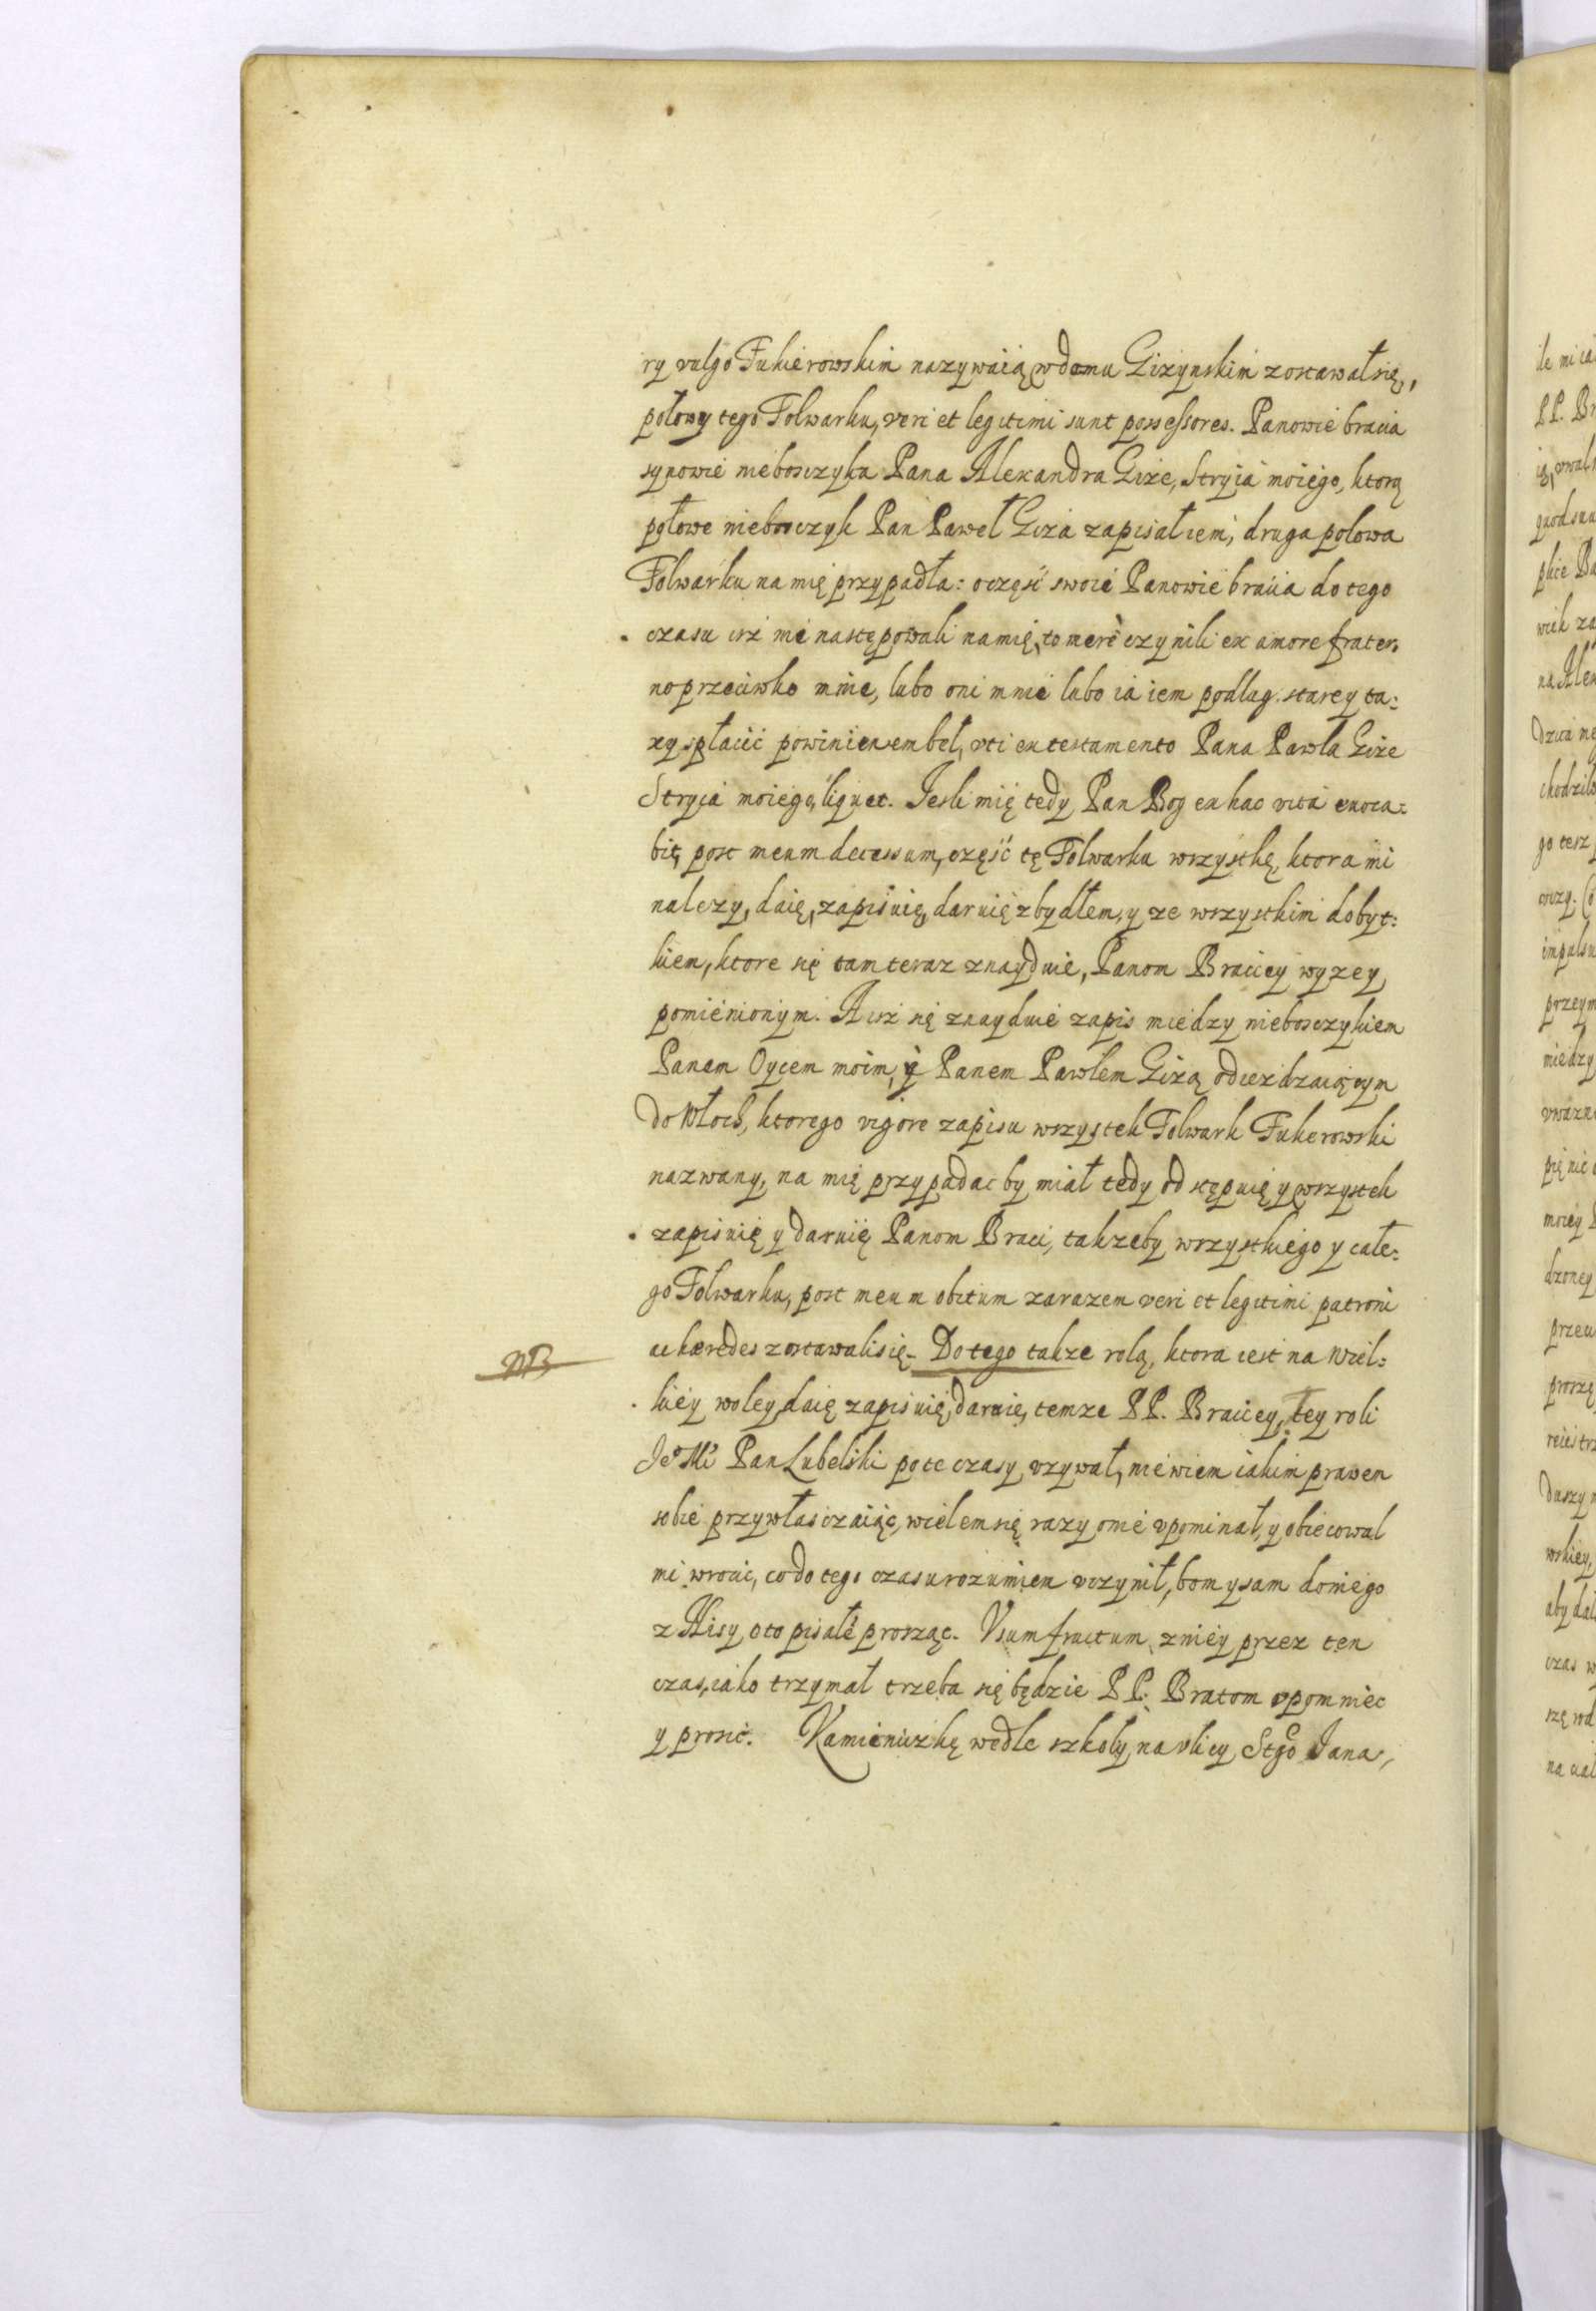 ry vulgo Fukierowskim nazywaią, w domu Gizynskim zostawał się,
połowy tego Folwarku, veri et legitimi sunt possessores. Panowie bracia
synowie nieboszczyka Pana Alexandra Gize, Stryia moiego, ktorą
połowe nieboszczyk Pan Paweł Giza zapisał iem, druga polowa
Folwarku na mię przypadła: o część swoie Panowie bracia do tego
czasu isz nie następowali na mię, to merè czynili ex amore frater,
no przeciwko mnie, lubo oni mnie lubo ia iem podlug starey ta:
xy spłacić powinienem beł, vti ex testamento Pana Pawla Gize
Stryia moiego, liquet. Iesli mię tedy Pan Bog ex hac vita evoca:
bit, post meum decessum, część tę Folwarku wszystkę, ktora mi
nalezy, daię, zapisuię, daruię z bydłem, y ze wszystkim dobyt:
kiem, ktore się tam teraz znayduie, Panom Braciey wyzey
pomienionym. A isz się znayduie zapis miedzy nieboszczykiem
Panem Oycem moim, y Panem Pawlem Gizą odiezdzaiącym
do Włoch, ktorego vigore zapisu wszystek Folwark Fukerowski
nazwany, na mię przypadac by miał tedy odstępuię y wszystek
zapisuię y daruię Panom Braci, takzeby wszystkiego y całe:
go Folwarku, post meum obitum zarazem veri et legitimi patroni
ac hæredes zostawali się. Do tego takze rolą, ktora iest na Wiel:
NB
kiey woley daię zapisuię, daruię, temze PP. Braciey, tey roli
Je° Mć Pan Lubelski po te czasy vzywał, nie wiem iakim prawem
sobie przywłasczaiąc, wielem się razy o nie vpominał, y obiecowal
mi wrocic, co do tego czasu rozumiem vczynił, bom y sam do niego
z Nisy o to pisałe prosząc. Vsumfructum z niey przez ten
czas, iako trzymał trzeba się będzie PP. Bratom vpomniec
y prosić. Kamieniczkę wedle szkoly, na vlicy Stgo Jana,